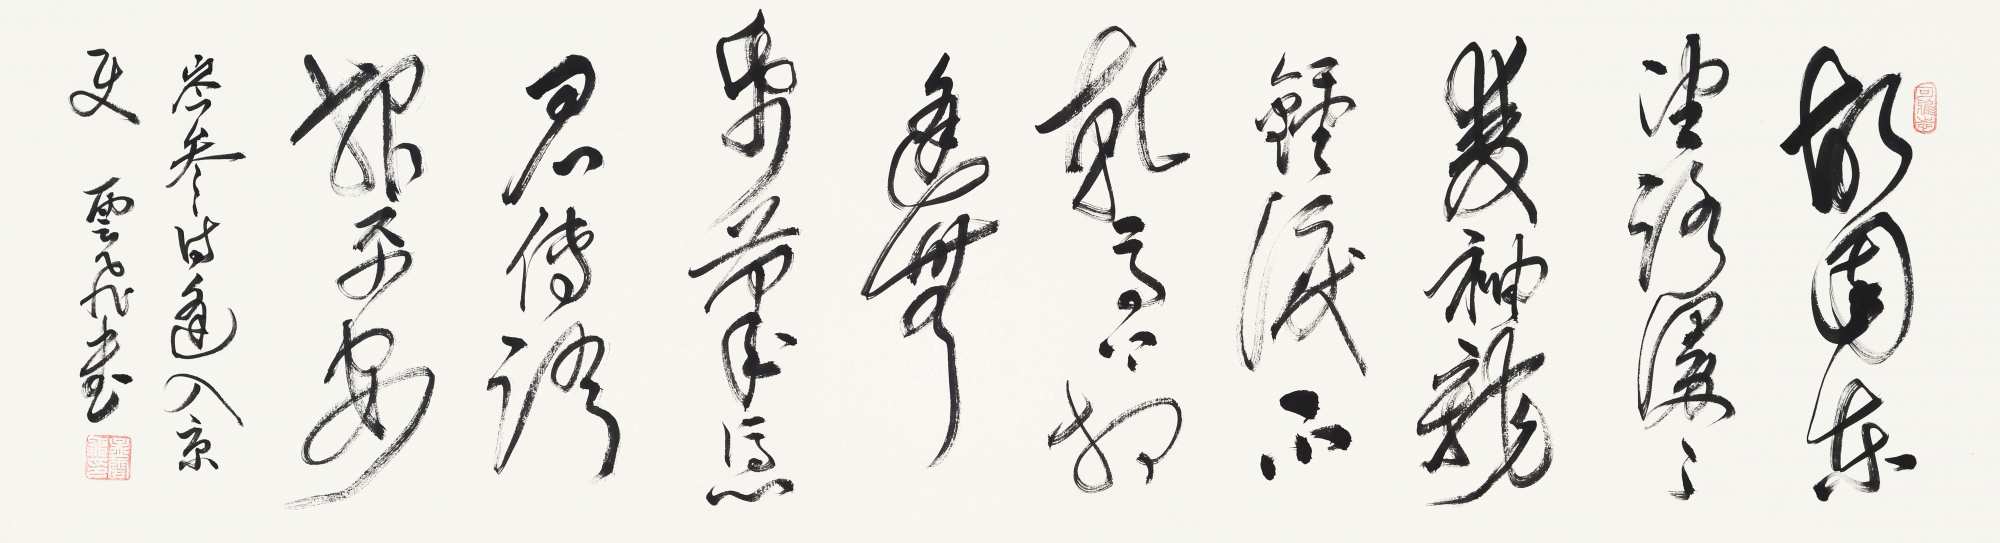 故園東
望路漫〻
雙袖龍
鐘淚不
乾馬上相
逢無
帋筆憑
君傳語
報平安
岑參詩逢入京
使 雲飛書